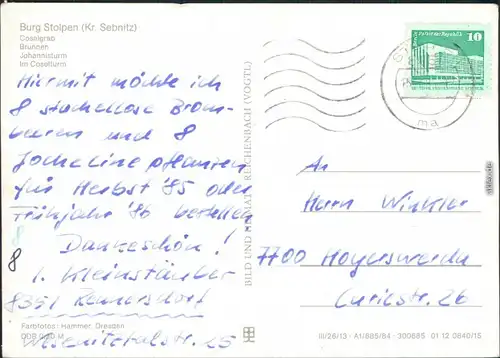 Burg Stolpen (Kr. Sebnitz)
Coselgrab
Brunnen
Johannisturm
Im Coselturm
Hiermit möchte ich
8 stachellose Brom-
beeren und 8
pflanzen
für Herbst '85 oder
Frühjahr '86 bestellen
Dankeschön!
8
I. Kleinstäuber
8351 Rennersdorf
Wesenitztalstr. 25
Farbfotos: Hammer, Dresden
DDR 0,80 M
BILD UND HEIMAT REICHENBACH (VOGTL)
10
ma
An
Herrn Winkler
7700 Hoyerswerda
Curiestr. 26
III/26/13 · A1/885/84 · 300685 01 12 0640/15